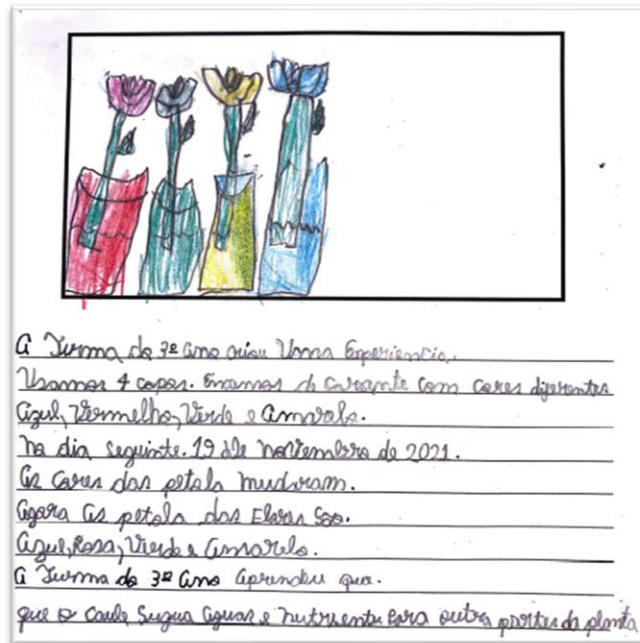 A Turma do 3º ano criou Uma Experiencia.
Usamos 4 copos. Enxemos de corante com cores diferentes
Azul, Vermelho, Verde e Amarelo.
na dia seguinte. 19 de novembro de 2021.
As cores das petala mudaram.
Agora As petala das Flores são.
Azul, Rosa, Verde e Amarelo.
A Turma do 3º Ano Aprendeu que.
que o caule Sugua aguas e nutriente para outra partes da planta